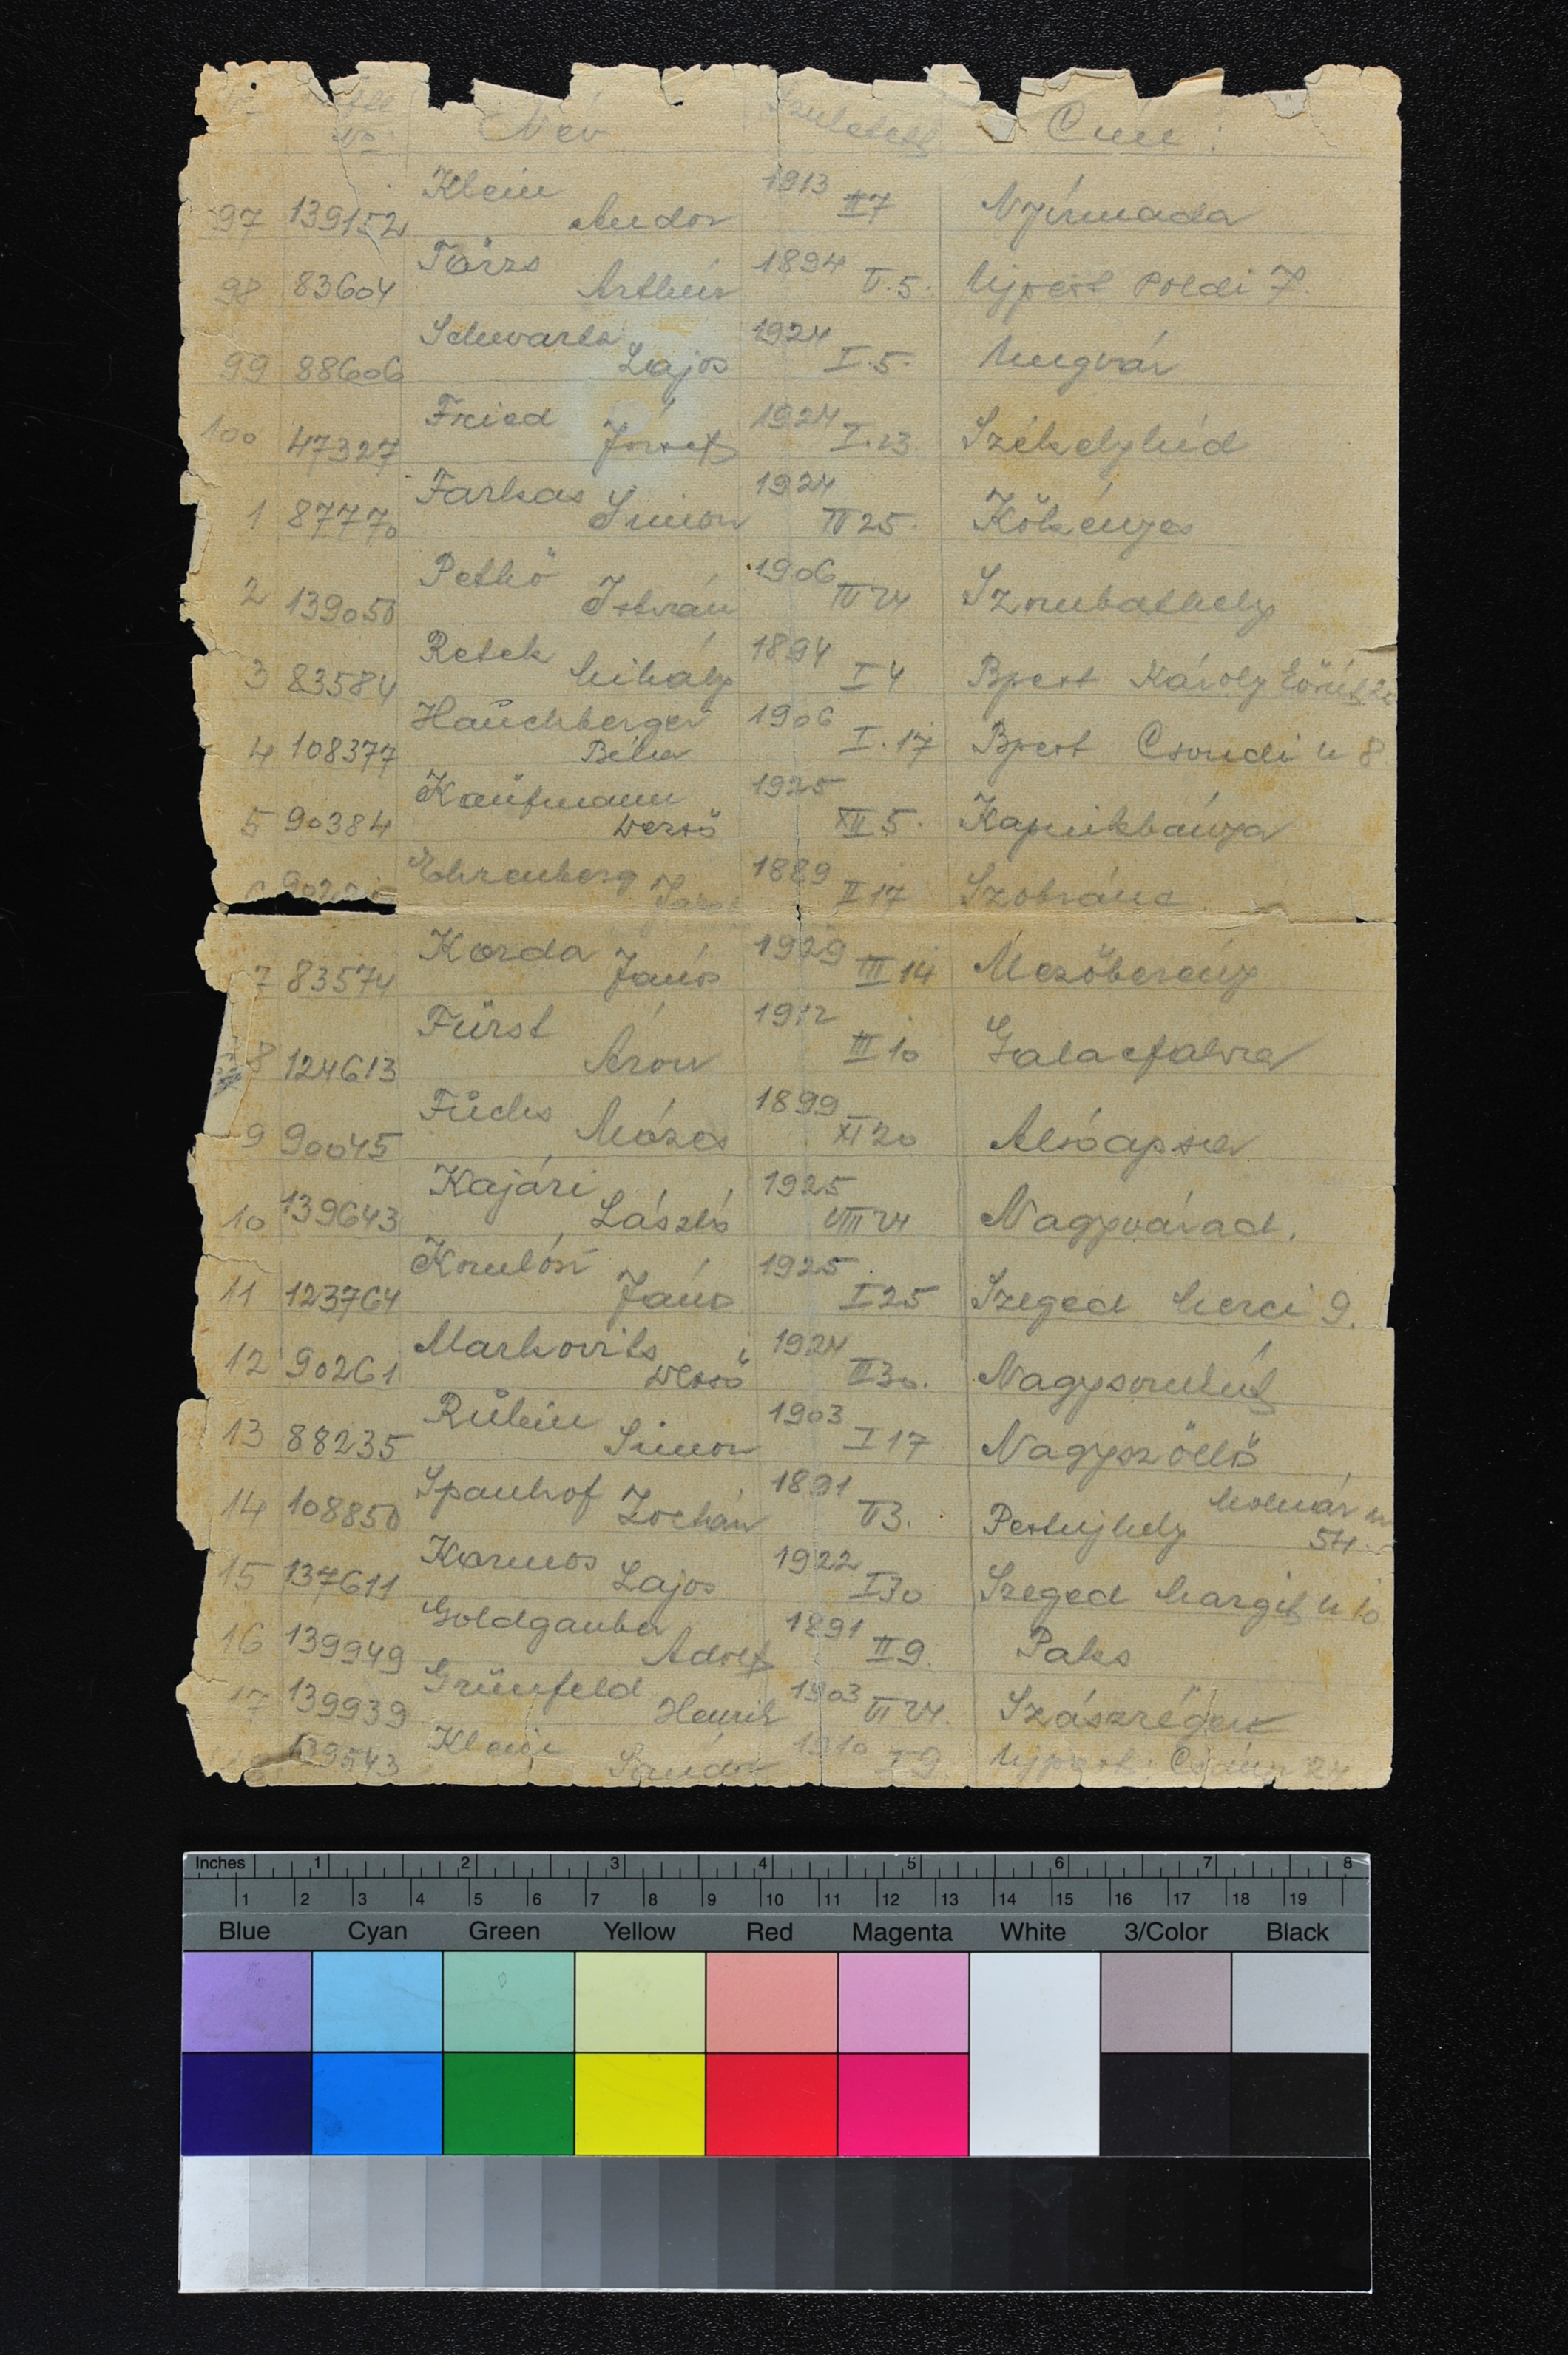 No Név Született Cím:
97 139152 Klein Andor 1913 II 7 Nyírmada
98 83604 Törzs Arthúr 1894 V.5. Ujpest Poldi 7.
99 88606 Schwartz Lajos 1924 I.5. Ungvár
100 47327 Fried József 1924 I.23. Székelyhíd
1 87770 Farkas Simon 1924 IV 25. Kökényes
2 139050 Pethő István 1906 IV 24 Szombathely
3 83584 Retek Mihály 1894 I 4 Bpest Károly körút
4 108377 Haŭchberger Béla 1906 I.17 Bpest Csondi u 8
5 90384 Kaŭfmann Dezső 1925 XII 5. Kapnikbánya
Ehrenberg 1889 II 17 Szobránc
7 83574 Korda János 1929 III 14 Mezőberény
8 124613 Fürst Áron 1912 III 10 Galacfalva
9 90045 Fŭchs Mózes 1899 XI 20 Alsóapsa
10 139643 Kajári László 1925 VIII 24 Nagyvárad.
11 123764 Komlósi János 1925 I 25 Szeged Merci 9.
12 90261 Markovits Dezső 1924 III 30. Nagysomkút
13 88235 Rŭbin Simon 1903 I 17 Nagyszöllő
14 108850 Spanhof Zoltán 1891 VI 3. Pestujhely Molnár u
54.
15 137611 Kormos Lajos 1922 I 30 Szeged Margit u 10
16 139949 Goldgauber Adolf 1891 II 9. Paks
17 139939 Grünfeld Henrik 1903 VI 24. Szászrégen
Sándor 1910 I 9 Ujpest. Csányi 24
Inches 1 2 3 4 5 6 7 8
1 2 3 4 5 6 7 8 9 10 11 12 13 14 15 16 17 18 19
Blue Cyan Green Yellow Red Magenta White 3/Color Black